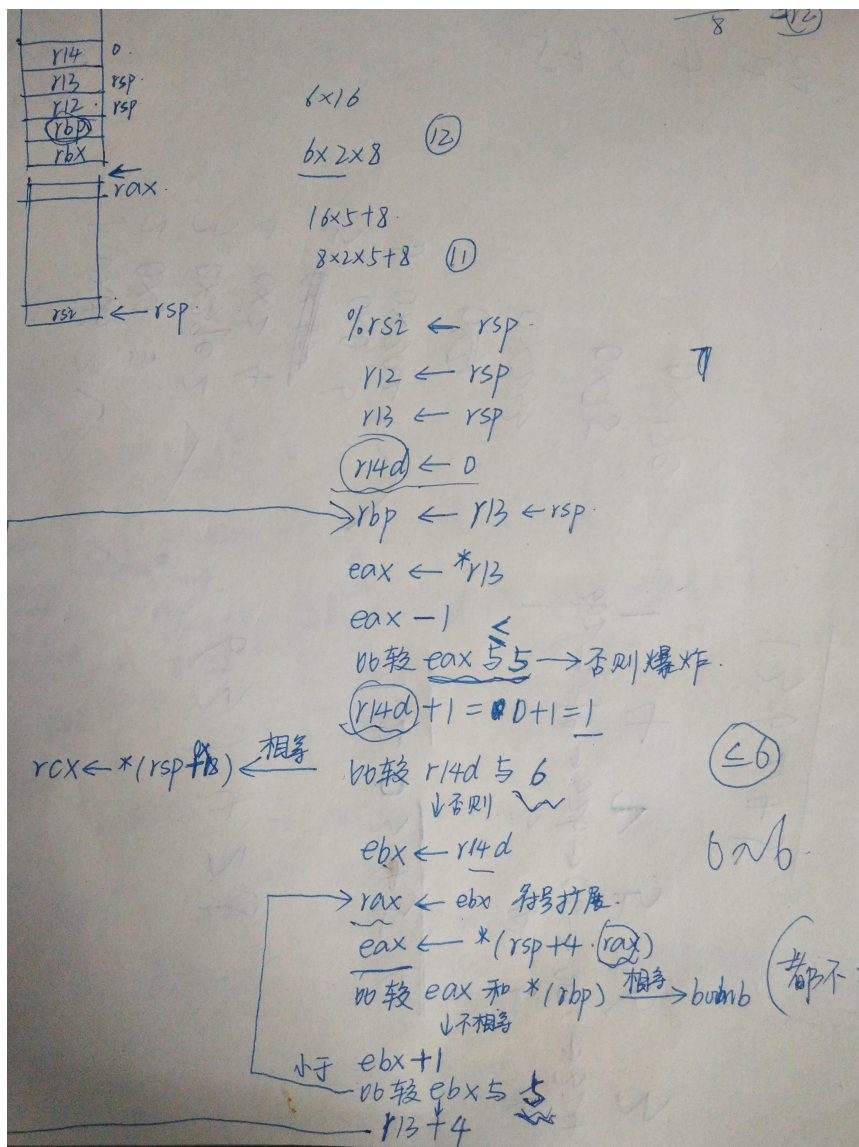 8
r12
r14 0.
r13 rsp.
r12. rsp
rbp
rbx
← rax.
rsi ← rsp.
6×16
6×2×8 ⑫
16×5+8.
8×2×5+8 ⑪
%rsi ← rsp.
r12 ← rsp
r13 ← rsp
r14d ← 0
rbp ← r13 ← rsp.
eax ← *r13
eax - 1
≤
比较 eax 与 5 → 否则爆炸.
r14d + 1 = 0+1 = 1
比较 r14d 与 6
相等
rcx ← *(rsp+0x18)
≤6
↓否则
ebx ← r14d
0~6.
rax ← ebx 符号扩展.
eax ← *(rsp+4·rax)
比较 eax 和 *(rbp) 相等 → bomb (都不
↓不相等
ebx+1
小于
比较 ebx 与 5
r13+4